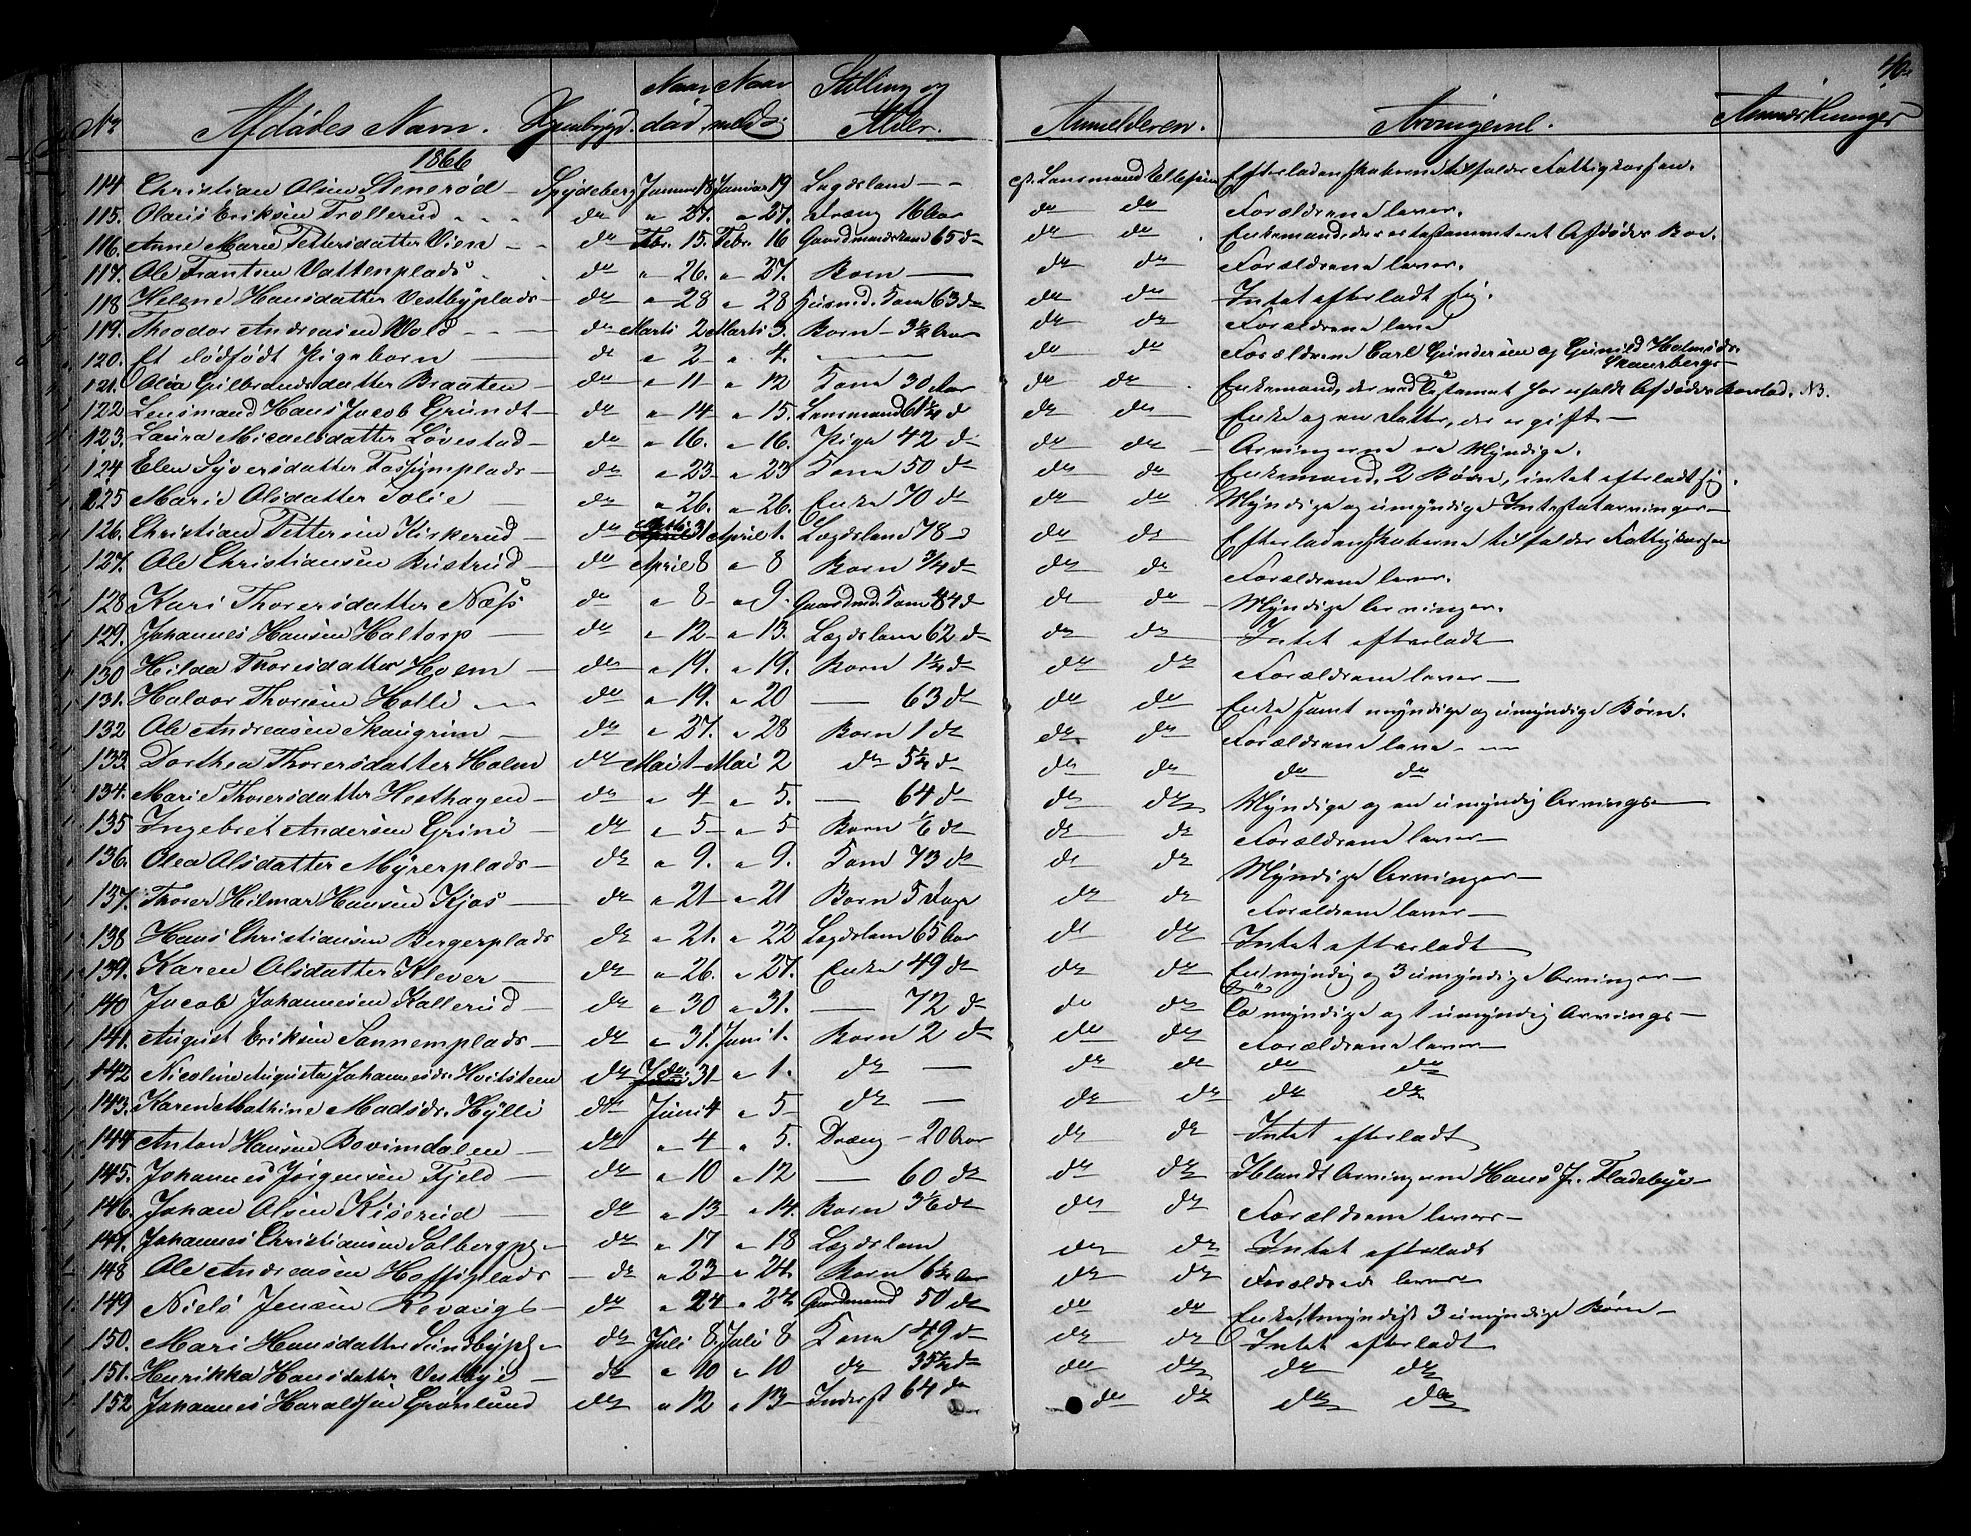 46.
No Afdødes Navn. Thinglag. Naar død Naar meldt Stilling og Alder. Anmelderen. Arvingerne. Anmærkninger
1866
114 Christian Olsen Stenerød Spydeberg Januar 18 Januar 19 Lægdslem cst. Lensmand Ellefsen Efterladenskaberne tilfalder Fattigkassen.
115. Olaus Eriksen Trollerud do " 27. " 27. Dræng 16 Aar do do Forældrene lever.
116. Anne Marie Pettersdatter Vien do Febr. 15. Febr. 16 Gaardmandskone 65 do do do Enkemand, der er testamenteret Afdødes Boe.
117. Ole Frantsen Vattenplads do " 26. " 27. Barn do do Forældrene lever.
118 Helene Hansdatter Vestbyplads do " 28 " 28 Husmd. Kone 63 do do do Intet efterladt sig.
119. Theodor Andreasen Wold do Marts 2 Marts 3. Barn 3½ Aar do do Forældrene leve
120. Et dødfødt Pigebarn do " 2 " 4. do do Forældrene Carl Gundersen og Gunild Holmsdr. Skansberg
121. Olia Gulbrandsdatter Braaten do " 11 " 12 Kone 30 Aar do do Enkemand, der ved Testament har erholdt Afdødes Bolod. NB.
122 Lensmand Hans Jacob Gründt do " 14 " 15. Lensmand 61½ do do do Enke og en Datter, der er gift
123. Laura Micaelsdatter Løvestad do " 16. " 16. Pige 42 do do do Arvingerne ere Myndige.
124 Elen Syversdatter Fossumplads do " 23 " 23 Kone 50 do do do Enkemand, 2 Børn, intet efterladt sig.
225 Marie Olsdatter Solie do " 26. " 26. Enke 70 do do do Myndige og umyndige Intestatarvinger
126. Christian Pettersen Kiskerud do Marts 31 April 1. Lægdslem 78 do do Efterladenskaberne tilfalder Fattigkassen
127. Ole Christiansen Bustrud do April 8 " 8 Barn ¾ do do do Forældrene lever.
128 Kari Thorersdatter Næss do " 8 " 9. Gaardmd. Kone 84 do do do Myndige Arvinger.
129. Johannes Hansen Haltorp do " 12 " 13. Lægdslem 62 do do do Intet efterladt
130 Hilda Thoresdatter Holm do " 19. " 19. Barn 1½ do do do Forældrene lever
131. Halvor Thoresen Holli do " 19. " 20 63 do do do Enke samt myndige og umyndige Børn.
132 Ole Andreasen Skaugrim do " 27. " 28 Barn 1 do do do Forældrene leve
133 Dorthea Thorersdatter Holm do Mai 1 Mai 2 do 5½ do do do do do
134. Marie Thorersdatter Hesthagen do " 4 " 5. 64 do do do Myndige og en umyndig Arving
135 Ingebret Andersen Grini do " 5 " 5 Barn 1/6 do do do Forældrene lever
136. Olea Olsdatter Myrerplads do " 9. " 9. Kone 73 do do do Myndige Arvinger
137. Thorer Hilmar Hansen Kjos do " 21 " 21 Barn 5 Dage do do Forældrene lever
138 Hans Christiansen Bergerplads do " 21. " 22 Lægdslem 65 Aar do do Intet efterladt
139. Karen Olsdatter Klever do " 26. " 27. Enke 49 do do do En myndig og 3 umyndige Arvinger
140 Jacob Johannesen Kallerud do " 30 " 31. 72 do do do myndige og 1 umyndig Arving
141. August Eriksen Sannemplads do " 31. Juni 1. Barn 2 do do do Forældrene lever
142 Nicoline Augusta Johannesdr. Hvitsteen do do 31 " 1. do do do do do
143. Karen Mathine Madsdr. Hylli do Juni 4 " 5 do do do do do
144 Anton Hansen Bovimdalen do " 4 " 5. Dræng 20 Aar do do Intet efterladt
145. Johannes Jørgensen Fjeld do " 10 " 12 60 do do do Iblandt Arvingerne Hans J. Fladebye
146. Johan Olsen Kiserud do " 13 " 14. Barn 3/6 do do do Forældrene lever
147. Johannes Christiansen Solbergpl. do " 17 " 18 Lægdslem do do Intet efterladt
148 Ole Andreasen Hoffsplads do " 23 " 24. Barn 6½ Aar do do Forældrene lever
149 Niels Jensen Revaugs do " 24 " 24 Gaardmand 50 do do do Enke, 1 myndig 3 umyndige Børn
150. Mari Hansdatter Sundbypl. do Juli 8. Juli 8 Kone 49 do do do Intet efterladt
151. Henrikka Hansdatter Vestbye do " 10 " 10 do 35½ do do do do do
152 Johannes Haraldsen Grønlund do " 12 " 13 Inderst 64 do do do do do